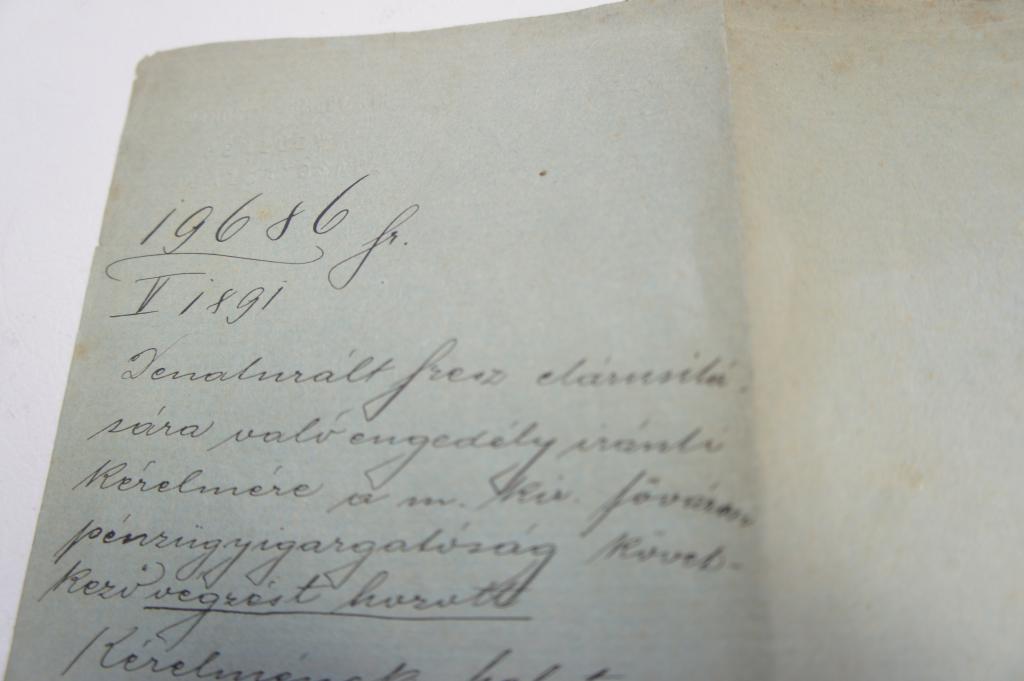 19686 sz.
V 1891
Denaturált szesz elárusitá-
sára való engedély iránti
kérelmére a m. kir. fővárosi
pénzügyigazgatóság követ-
kező végzést hozott
Kérelmének